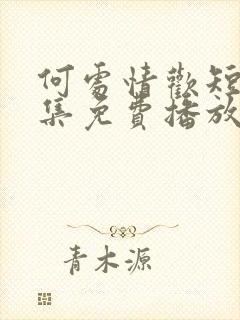 何處情歡短
集免費播放
青木源